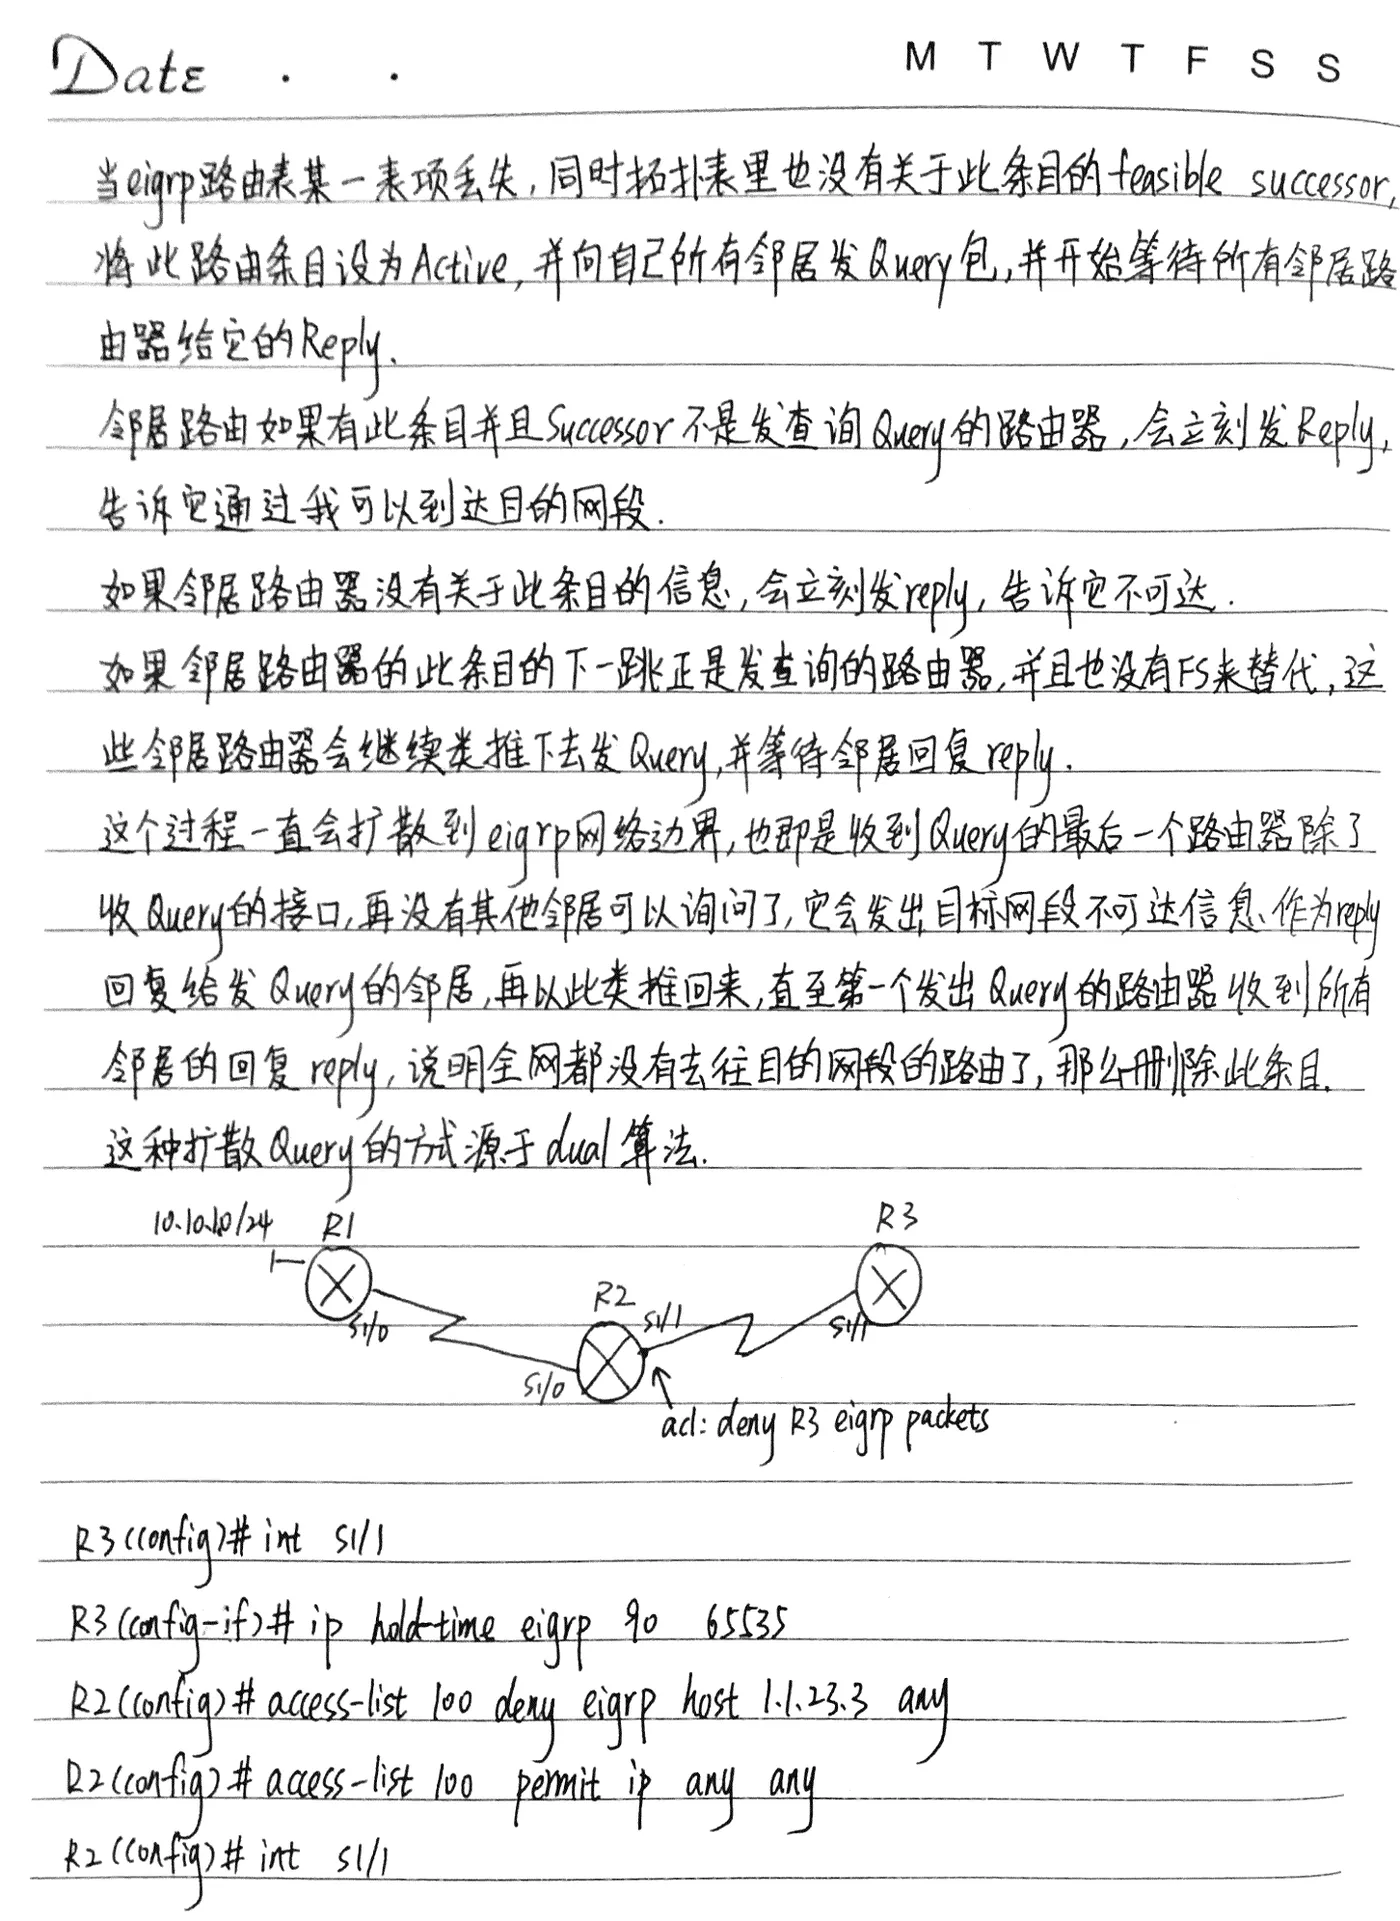 Date . . M T W T F S S
当eigrp路由表某一表项丢失,同时拓扑表里也没有关于此条目的feasible successor,
将此路由条目设为Active,并向自己所有邻居发Query包,并开始等待所有邻居路
由器给它的Reply.
邻居路由如果有此条目并且Successor不是发查询Query的路由器,会立刻发Reply,
告诉它通过我可以到达目的网段.
如果邻居路由器没有关于此条目的信息,会立刻发reply,告诉它不可达.
如果邻居路由器的此条目的下一跳正是发查询的路由器,并且也没有FS来替代,这
些邻居路由器会继续类推下去发Query,并等待邻居回复reply.
这个过程一直会扩散到eigrp网络边界,也即是收到Query的最后一个路由器除了
收Query的接口,再没有其他邻居可以询问了,它会发出目标网段不可达信息、作为reply
回复给发Query的邻居,再以此类推回来,直至第一个发出Query的路由器收到所有
邻居的回复reply,说明全网都没有去往目的网段的路由了,那么删除此条目.
这种扩散Query的方式源于dual算法.
10.10.1.0/24 R1 R3
S1/0 R2 S1/1 S1/1
S1/0
acl: deny R3 eigrp packets
R3(config)# int s1/1
R3(config-if)# ip hold-time eigrp 90 65535
R2(config)# access-list 100 deny eigrp host 1.1.23.3 any
R2(config)# access-list 100 permit ip any any
R2(config)# int s1/1